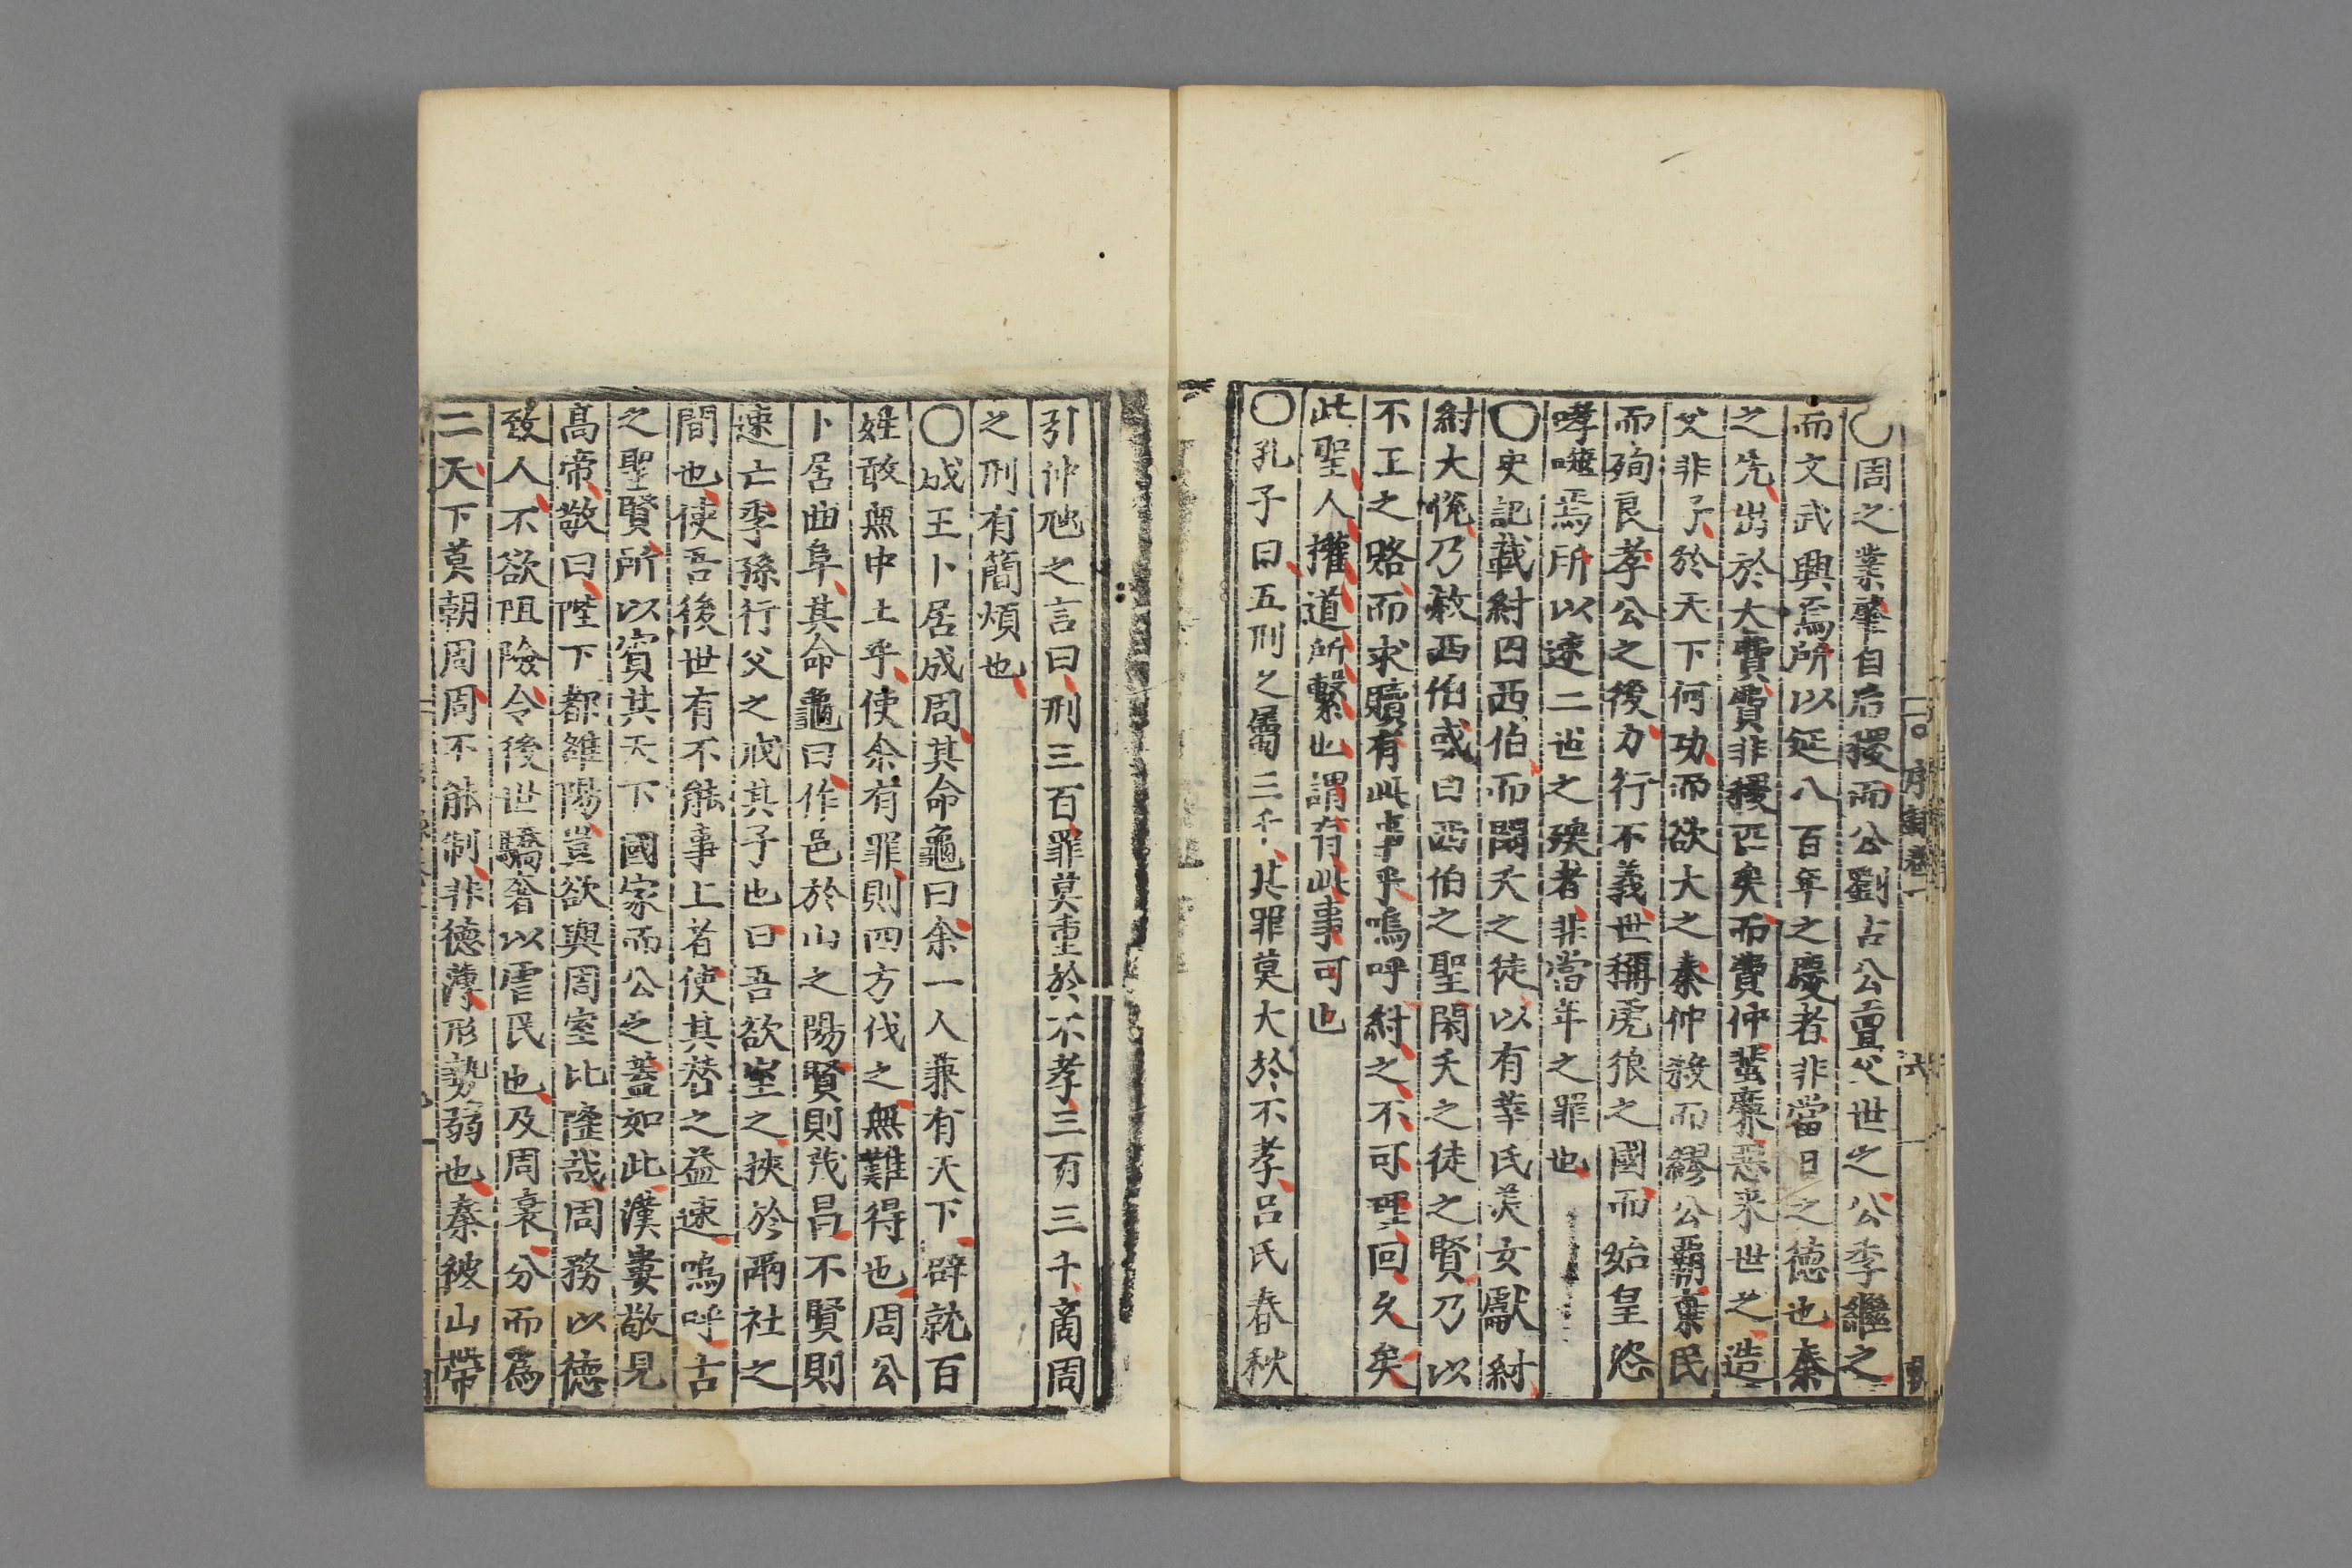 〇周之業肇自后稷而公劉古公亶父世之公季繼之
而文武興焉所以延八百年之慶者非當日之德也秦
之先出於大費費非稷匹矣而費仲蜚廉惡来世之造
父非子於天下何功而欲大之秦仲殺而繆公霸棄民
而殉良孝公之後力行不義世稱虎狼之國而始皇恣
哮噬焉所以速二世之殃者非當年之罪也
〇史記載紂囚西伯而閎夭之徒以有莘氏美女獻紂
紂大悅乃赦西伯或曰西伯之聖閎夭之徒之賢乃以
不正之賂而求贖有此事乎嗚呼紂之不可理囘久矣
此聖人權道所繫也謂有此事可也
〇孔子曰五刑之屬三千其罪莫大於不孝呂氏春秋
引仲虺之言曰刑三百罪莫重於不孝三百三千商周
之刑有簡煩也
〇成王卜居成周其命龜曰余一人兼有天下辟就百
姓敢無中土乎使余有罪則四方伐之無難得也周公
卜居曲阜其命龜曰作邑於山之陽賢則茂昌不賢則
速亡季孫行父之戒其子也曰吾欲室之挾於兩社之
間也使吾後世有不能事上者使其替之益速嗚呼古
之聖賢所以賓其天下國家而公之蓋如此漢婁敬見
高帝敬曰陛下都雒陽豈欲與周室比隆哉周務以德
致人不欲阻險令後世驕奢以虐民也及周衰分而為
二天下莫朝周周不能制非德薄形勢弱也秦被山帶